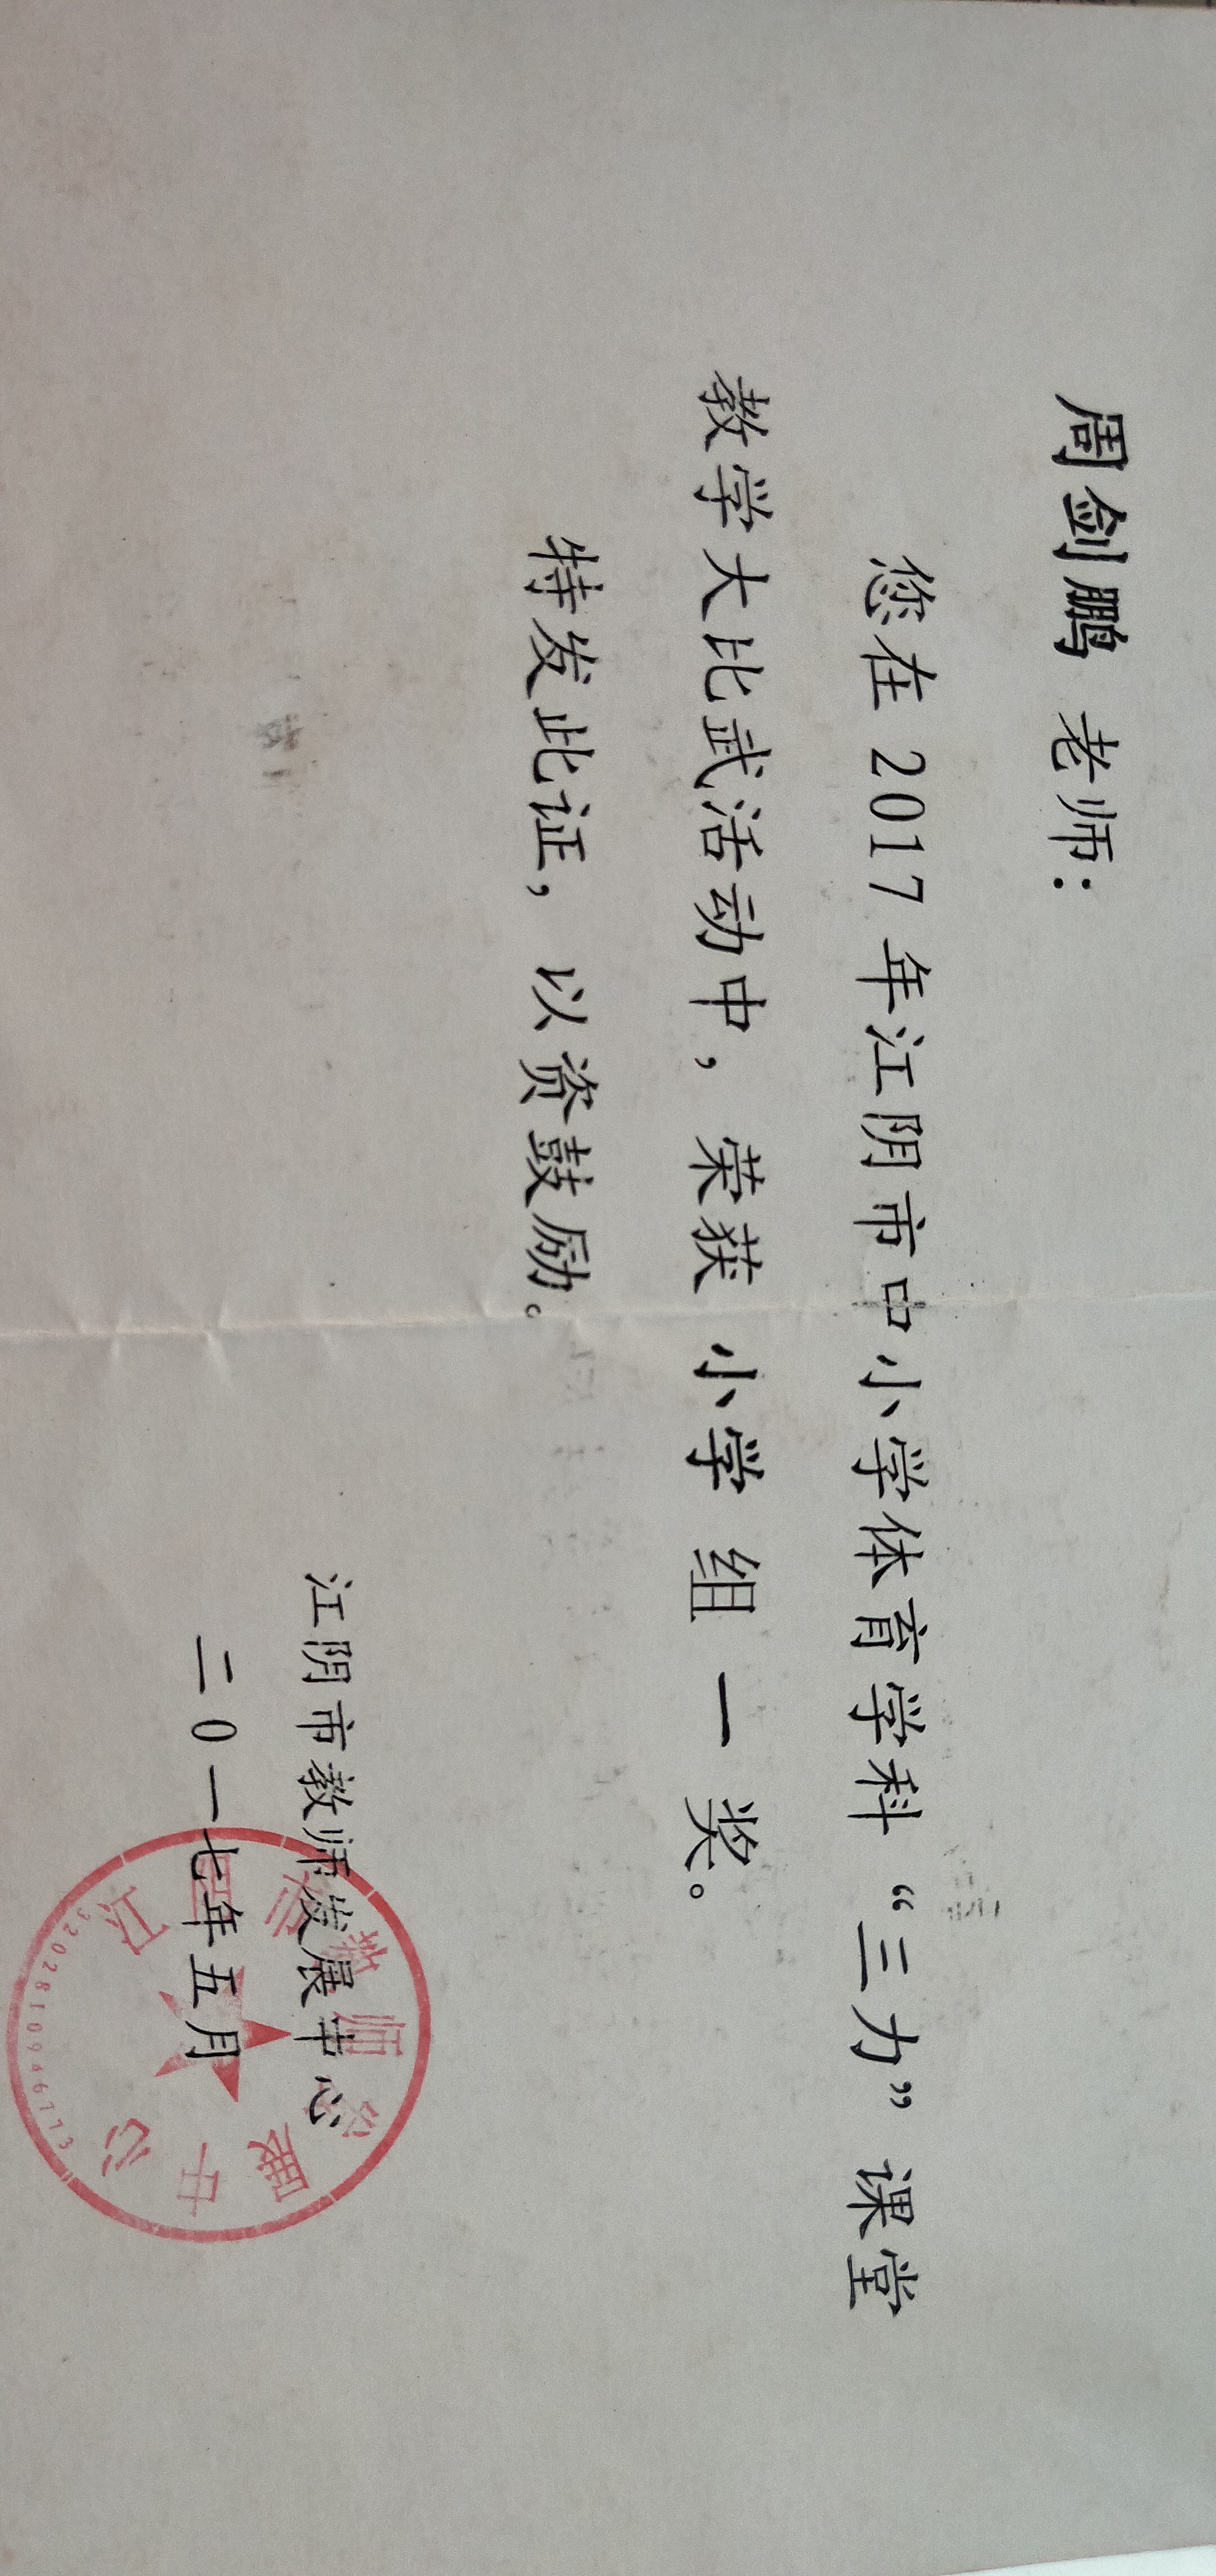 周剑鹏 老师：
您在 2017 年江阴市中小学体育学科 “三力” 课堂
教学大比武活动中，荣获 小学 组 一 奖。
特发此证，以资鼓励。
江阴市教师发展中心
二0一七年五月
江阴市教师发展中心